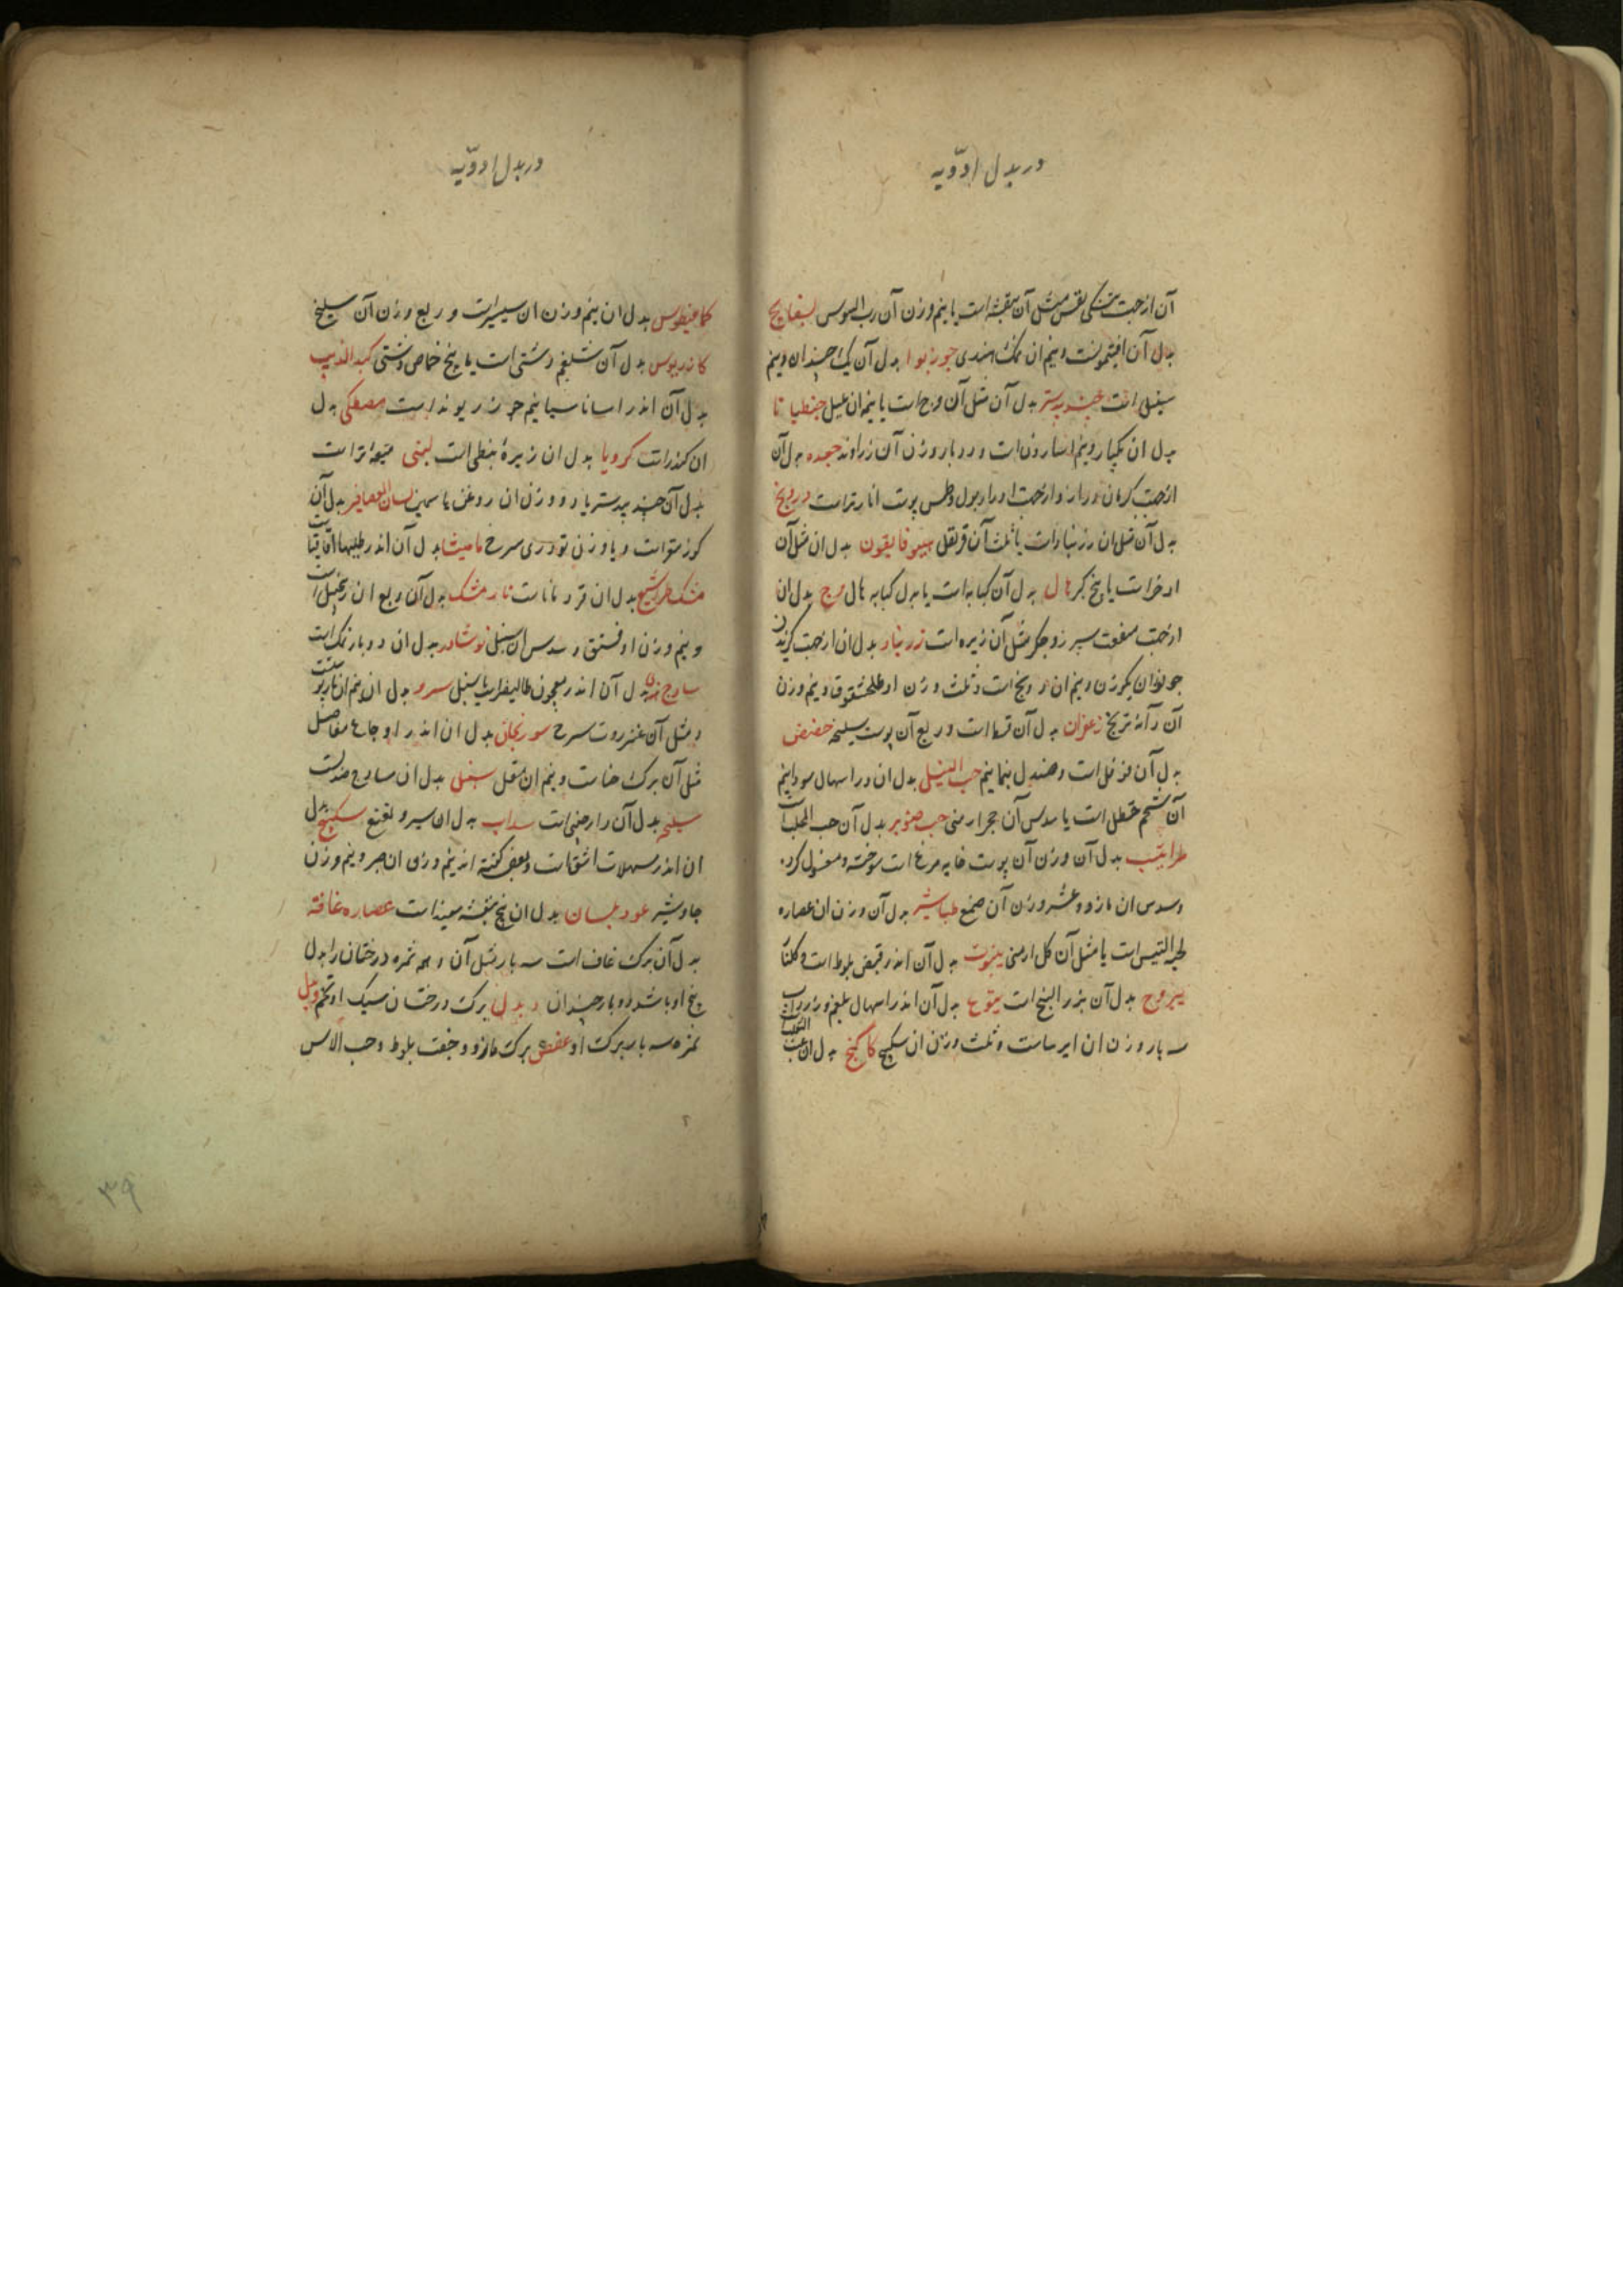 در بدل ادویه
آن از جهت تنکی نفس مثل آن بنفشه است یا نیم وزن آن رب السوس بسفایج
بدل آن افتیمونست و نیم ان نمک هندی جوزبوا بدل آن یک چندان و نیم
سنبل است جندبیدستر بدل آن مثل آن وج است یا نیم ان فلفل جنطیانا
بدل ان یکبار و نیم اسارون است و دو بار وزن آن زراوند جعده بدل آن
از جهت کرمان دراز و از جهت ادرار بول و طمس پوست انار تر است درونج
بدل آن مثل ان زرنباد است یا ثلث آن قرنفل هیوفاریقون بدل ان مثل آن
اذخر است یا بیخ کبر هال بدل آن کبابه است یا بدل کبابه هال وج بدل ان
از جهت منفعت سپرز و جگر مثل آن زیره است زرنباد بدل ان از جهت گزیدن
جانوران یکوزن و نیم ان درونج است و ثلث وزن او طلخشقوق و نیم وزن
آن دانه ترنج زعفران بدل آن قسط است و ربع آن پوست سلیخه حضض
بدل آن فوفل است و صندل بنمانیم حب النیل بدل ان در اسهال سودا نیم
آن شحم حنظل است یا سدس آن حجر ارمنی حب صنوبر بدل آن حب المحلب است
طراثیث بدل آن وزن آن پوست خایه مرغ است سوخته و مغسول کرده
و سدس ان مازو و عشر وزن آن صمغ طباشیر بدل آن وزن ان عصاره
لحیة التیس است یا مثل آن گل ارمنی ینبوت بدل آن اندر قبض بلوط است و گلنار
یبروح بدل آن بزر البنج است یتوع بدل آن اندر اسهال بلغم و زرداب
سه بار وزن ان ایرساست و ثلث وزن ان سکبینج کاکنج بدل ان عنب الثعلب
در بدل ادویه
کمافیطوس بدل ان نیم وزن ان سیسالیوست و ربع وزن آن سلیخه
کمادریوس بدل آن شلغم دشتی است یا بیخ خماض دشتی کبد الذیب
بدل آن اندر اسانا سیا نیم جزء ریوند است مصطکی بدل
ان کندر است کرویا بدل ان زیرهٔ نبطی است لبنی میعهٔ تر است
بدل آن جندبیدستر یا دو وزن ان روغن یاسمین لسان العصافیر بدل آن
و یا وزن تودری سرخ مامیثا بدل آن اندر طلیها اقاقیا
مشکطرامشیع بدل ان قردماناست نارمشک بدل آن ربع ان زنجبیل است
و نیم وزن او فستق و سدس ان سنبل نوشادر بدل ان دو بار نمک است
سادج هندی بدل آن اندر معجون طالیسفر است یا سنبل سرو بدل ان نیم ان نار پوست
و مثل آن عنزروت سرخ سورنجان بدل ان اندر اوجاع مفاصل
مثل آن برک حناست و نیم ان مقل سنبل بدل ان سادج هندیست
سلیخه بدل آن دارچینی است سداب بدل ان سیر و نعنع سکبینج بدل
ان اندر مسهلات اشق است و بعضی گفته اند نیم وزن ان صبر و نیم وزن
جاوشیر عود بلسان بدل ان بیخ بنفشه سفید است عصاره غافت
بدل آن برک غاف است سه بار مثل آن و همه ثمره درختان را بدل
بیخ او باشد دو بار چندان و بدل برک درختان سبک او تخم و بدل
ثمره سه بار برک او عفص برک مازو و جفت بلوط و حب الآس
۳۹